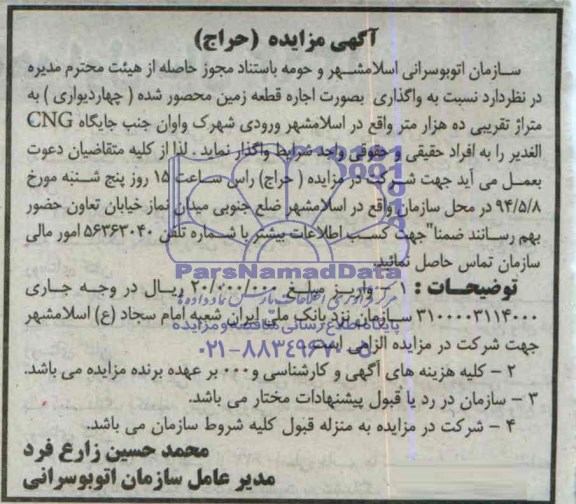 آگهی مزایده (حراج)
سازمان اتوبوسرانی اسلامشهر و حومه باستناد مجوز حاصله از هیئت محترم مدیره
در نظردارد نسبت به واگذاری بصورت اجاره قطعه زمین محصور شده (چهاردیواری) به
متراژ تقریبی ده هزار متر واقع در اسلامشهر ورودی شهرک واوان جنب جایگاه CNG
الغدیر را به افراد حقیقی و حقوقی واجد شرایط واگذار نماید. لذا از کلیه متقاضیان دعوت
بعمل می آید جهت شرکت در مزایده (حراج) راس ساعت ۱۵ روز پنج شنبه مورخ
۹۴/۵/۸ در محل سازمان واقع در اسلامشهر ضلع جنوبی میدان نماز خیابان تعاون حضور
بهم رسانند ضمنا"جهت کسب اطلاعات بیشتر با شماره تلفن ۵۶۳۶۳۰۴۰ امور مالی
سازمان تماس حاصل نمائید.
ParsNamadData
توضیحات : ۱ - واریز مبلغ ۲۰/۰۰۰/۰۰۰ ریال در وجه جاری
مرکز فرآوری اطلاعات پارس نماد داده ها
۳۱۰۰۰۰۳۱۱۴۰۰۰ سازمان نزد بانک ملی ایران شعبه امام سجاد (ع) اسلامشهر
پایگاه اطلاع رسانی مناقصه و مزایده
جهت شرکت در مزایده الزامی است.
۰۲۱-۸۸۳۴۹۶۷۰
۲ - کلیه هزینه های آگهی و کارشناسی و۰۰۰ بر عهده برنده مزایده می باشد.
۳ - سازمان در رد یا قبول پیشنهادات مختار می باشد.
۴ - شرکت در مزایده به منزله قبول کلیه شروط سازمان می باشد.
محمد حسین زارع فرد
مدیر عامل سازمان اتوبوسرانی